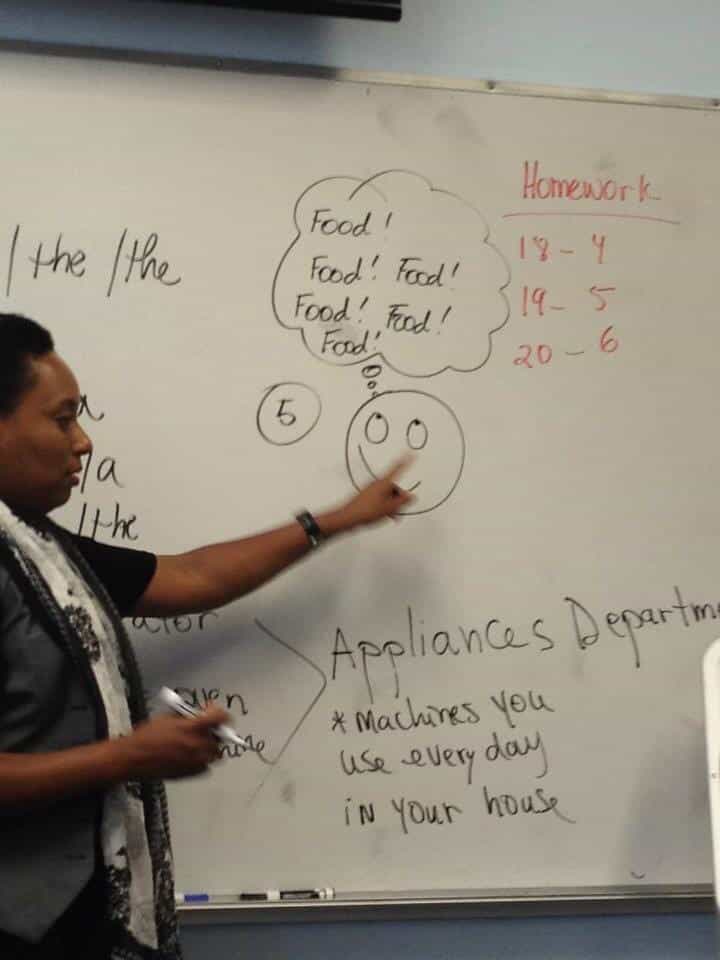 /the /the
Food!
Food! Food!
Food! Food!
Food!
Homework
18 - 4
19 - 5
20 - 6
5
a
/a
/the
Appliances
oven
*Machines you
use every day
in your house